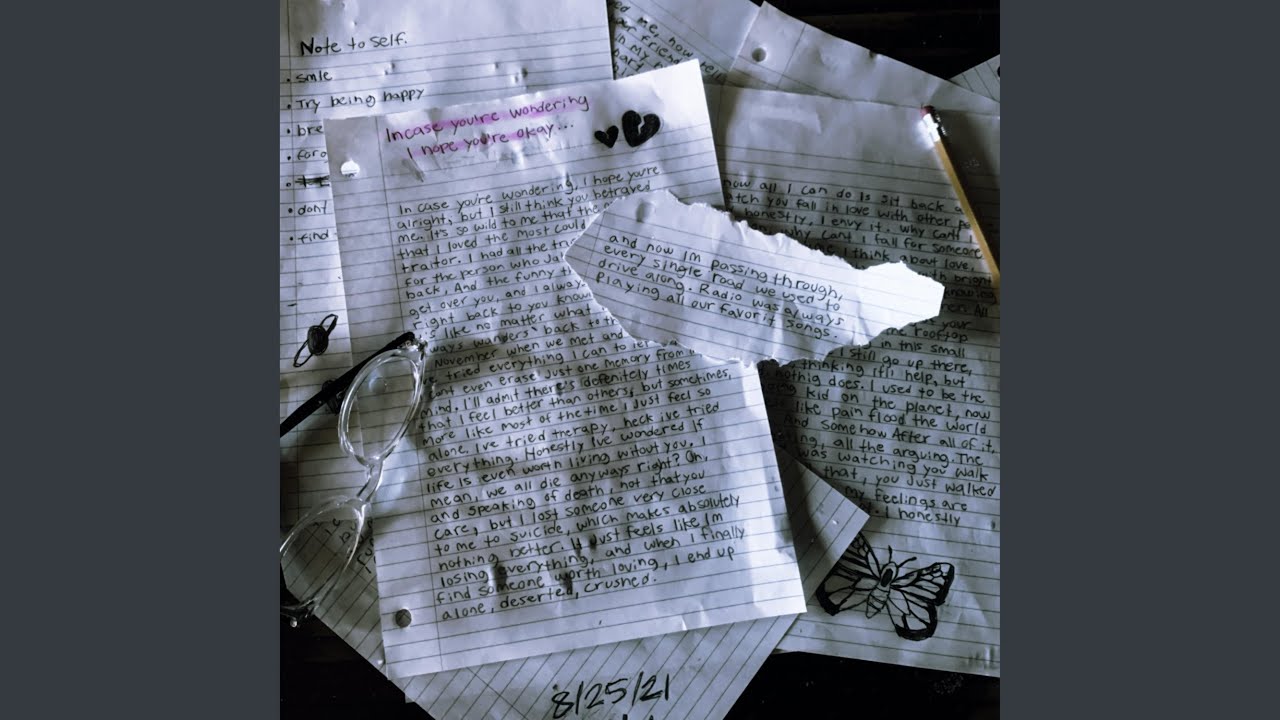 Note to self.
• smle
• Try being happy
• bre
• forg
• don't
• find
me, now
friend
in my
Incase you're wondering
I hope you're okay...
In case you're wondering, I hope you're
alright, but I still think you betrayed
me. It's so wild to me that the
that I loved the most could
traitor. I had all the
for the person who
back. And the funny
get over you, and I alway
right back to you know
it's like no matter what
ways wanders back to th
November when we met and
tried everything I can to
cant even erase just one memory from
mind. I'll admit there's dofenitely times
that I feel better than others, but sometimes,
more like most of the time i Just feel so
alone. Ive tried therapy, heck ive tried
everything. Honestly Ive wondered if
life is even worth living witout you. I
mean, we all die anyways right? Oh,
and speaking of death, not that you
care, but I lost someone very close
to me to suicide, which makes absolutely
nothing better. It Just feels like Im
losing everything, and when I finally
find someone worth loving, I end up
alone, deserted, crushed.
and now Im passing through,
every single road we used to
drive along. Radio was always
Playing all our favorit songs.
now all I can do is sit back a
atch you fall in love with other pe
honestly, I envy it. why cant
why cant I fall for someone
I think about love,
bright
All
your
rooftop
in this small
I still go up there,
thinking itll help, but
nothig does. I used to be the
kid on the planet, now
like pain flood the world
And somehow After all of it,
all the arguing. The
was watching you walk
that, you just walked
my feelings are
I honestly
8/25/21